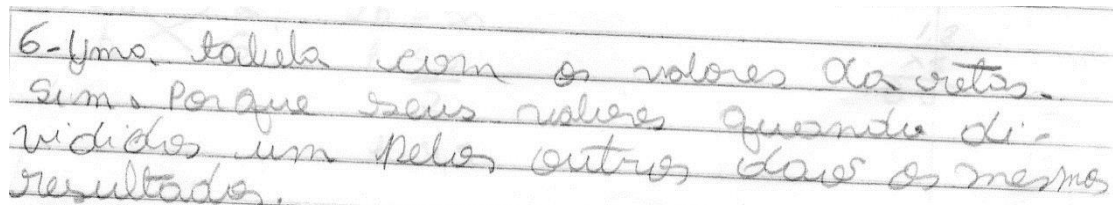 6-Uma tabela com os valores da retas.
Sim. Porque seus valores quando di-
vididos um pelos outros daõ os mesmos
resultados.